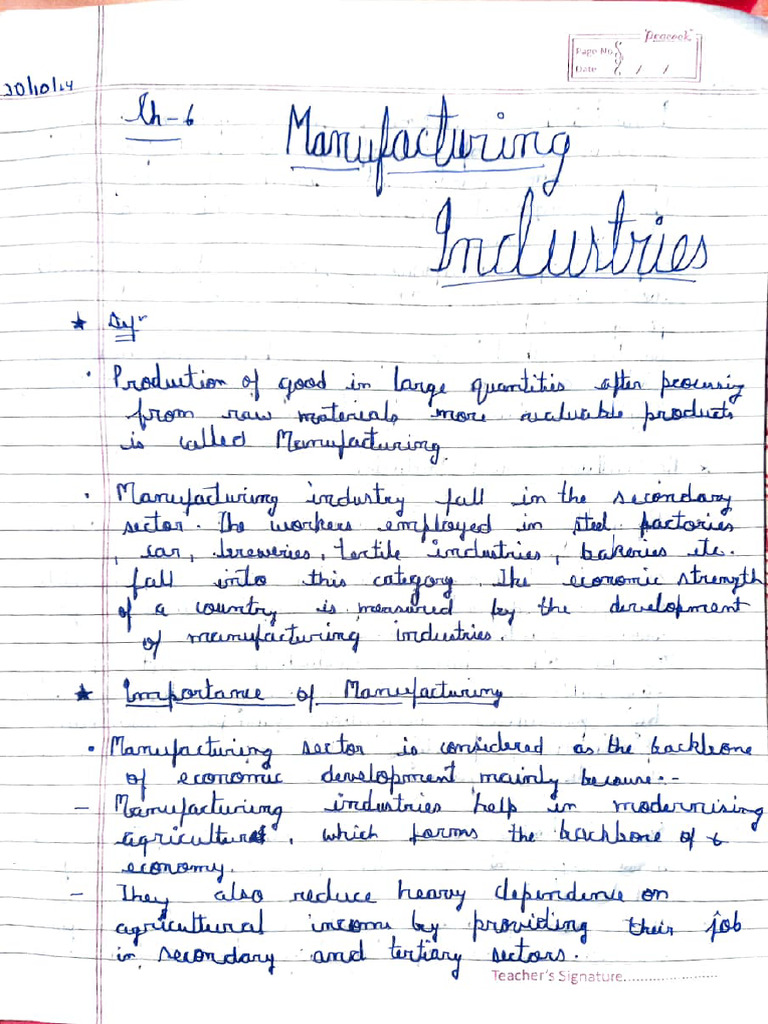 Peacock
Page No.
Date / /
30/10/24
Ch-6 Manufacturing
Industries
★ Defn
• Production of good in large quantities after processing
from raw materials more valuable products
is called Manufacturing.
• Manufacturing industry fall in the secondary
sector. The workers employed in steel factories
, car, breweries, textile industries, bakeries etc.
fall into this category. The economic strength
of a country is measured by the development
of manufacturing industries.
★ Importance of Manufacturing
• Manufacturing sector is considered as the backbone
of economic development mainly because:-
- Manufacturing industries help in modernising
agriculture, which forms the backbone of
economy.
- They also reduce heavy dependence on
agricultural income by providing their job
in secondary and tertiary sectors.
Teacher's Signature.....................